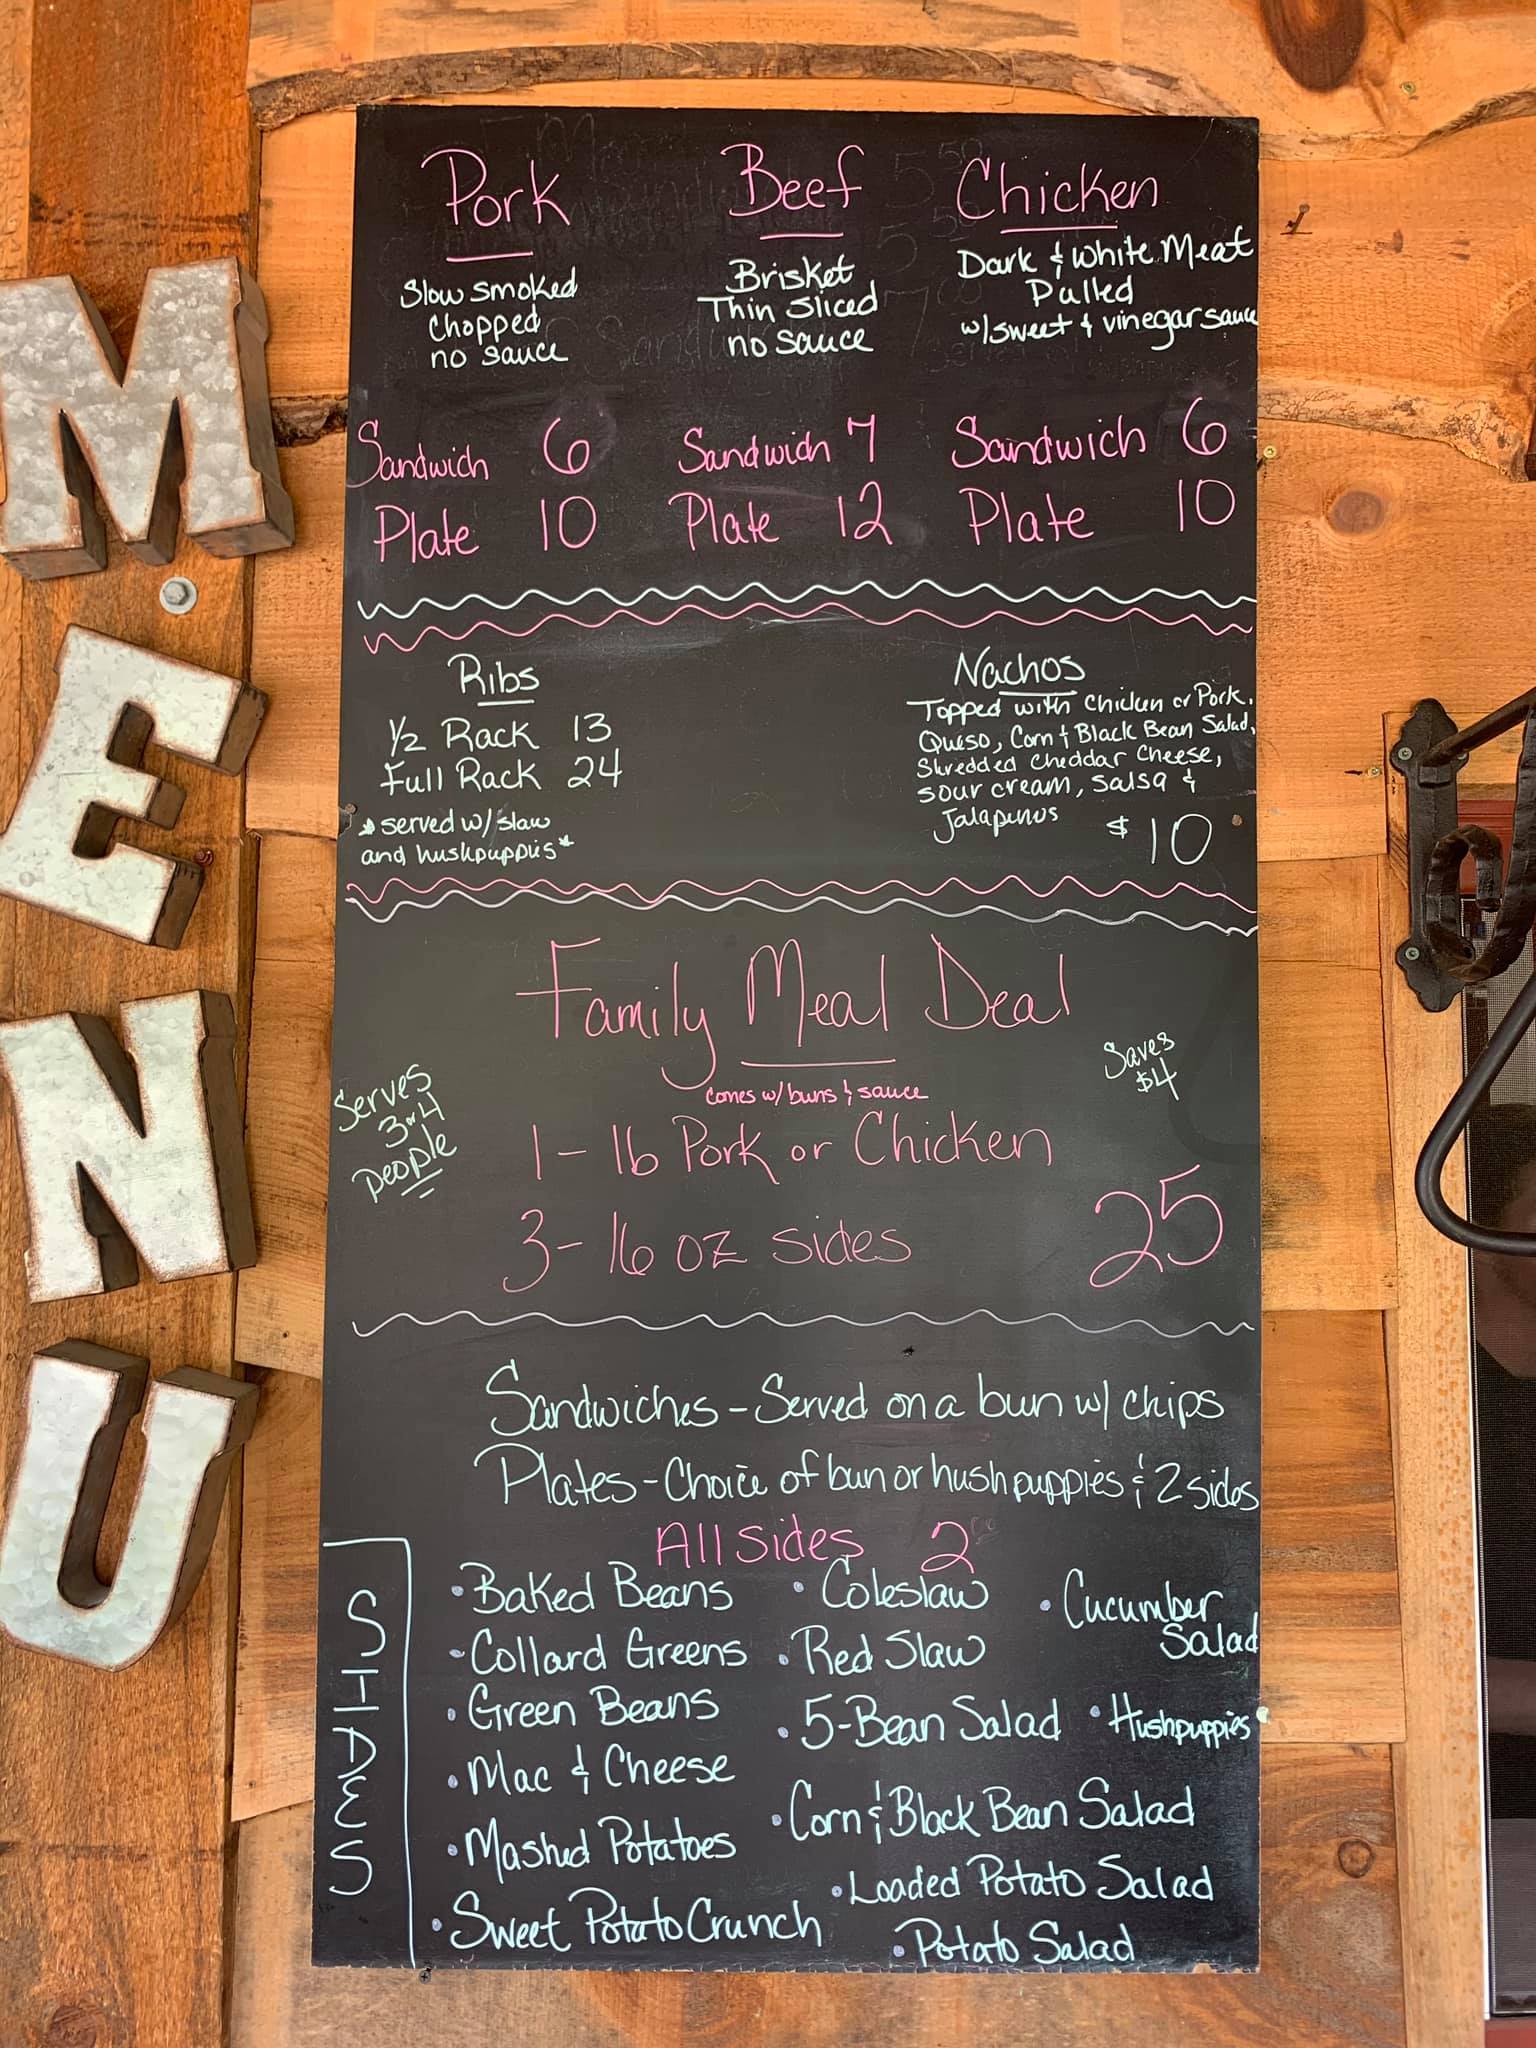 MENU
Pork
Slow smoked
Chopped
no sauce
Sandwich 6
Plate 10
Beef
Brisket
Thin Sliced
no sauce
Sandwich 7
Plate 12
Chicken
Dark & White Meat
Pulled
w/sweet & vinegar sauce
Sandwich 6
Plate 10
Ribs
1/2 Rack 13
Full Rack 24
*served w/ slaw
and hushpuppies*
Nachos
Topped with Chicken or Pork,
Queso, Corn & Black Bean Salad,
Shredded Cheddar Cheese,
sour cream, salsa &
Jalapenos
$10
Family Meal Deal
comes w/ buns & sauce
Serves
3 or 4
people
Saves
$4
1 - lb Pork or Chicken
3 - 16 oz sides
25
Sandwiches - Served on a bun w/ chips
Plates - Choice of bun or hushpuppies & 2 sides
All sides 2.00
SIDES
• Baked Beans
• Collard Greens
• Green Beans
• Mac & Cheese
• Mashed Potatoes
• Sweet Potato Crunch
• Coleslaw
• Red Slaw
• 5-Bean Salad
• Corn & Black Bean Salad
• Loaded Potato Salad
• Potato Salad
• Cucumber
Salad
• Hushpuppies